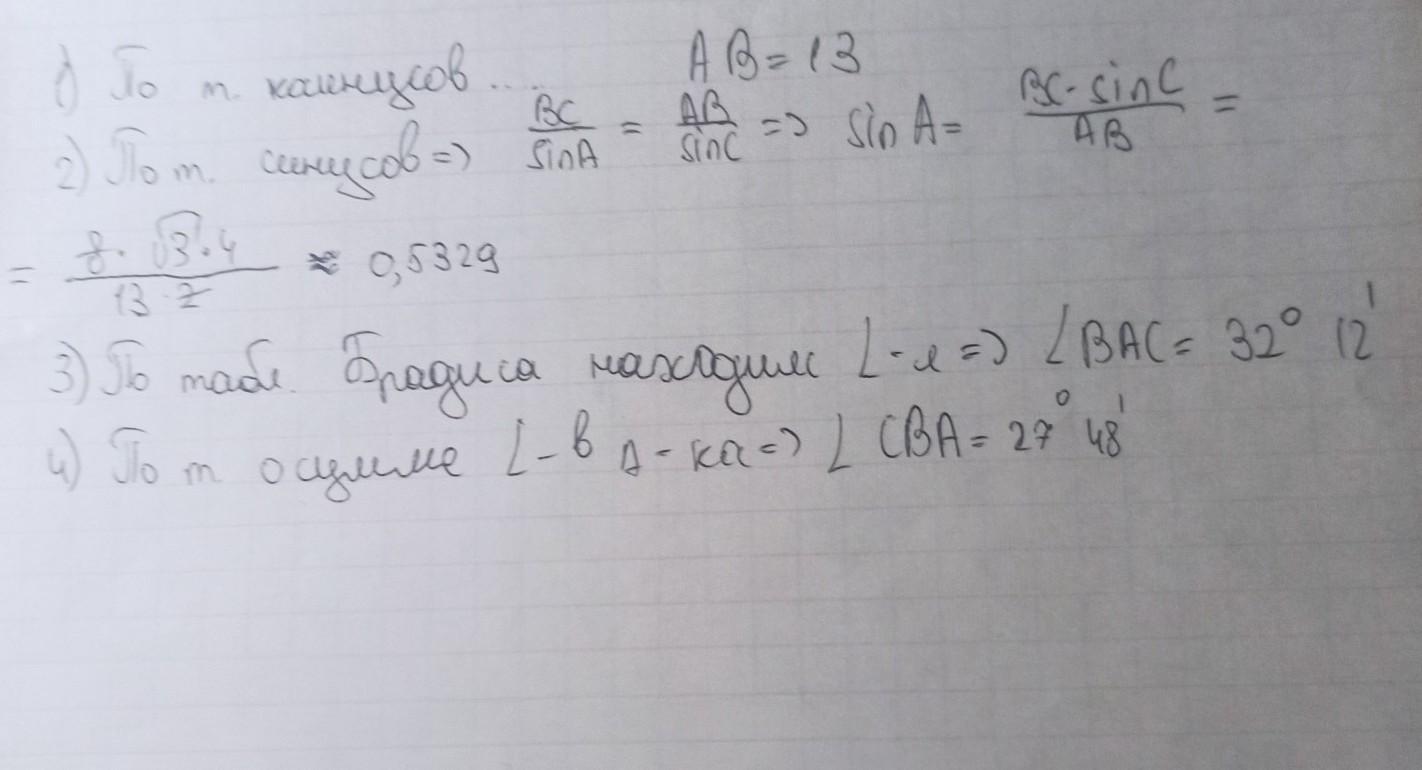 1) По т. косинусов.... AB = 13
2) По т. синусов => BC/sinA = AB/sinC => sin A = BC·sinC/AB =
= 8·√3·4/13·2 ≈ 0,5329
3) По табл. Брадиса находим ∠-л => ∠BAC = 32° 12'
4) По т о сумме ∠-в Δ-ка => ∠CBA = 27° 48'